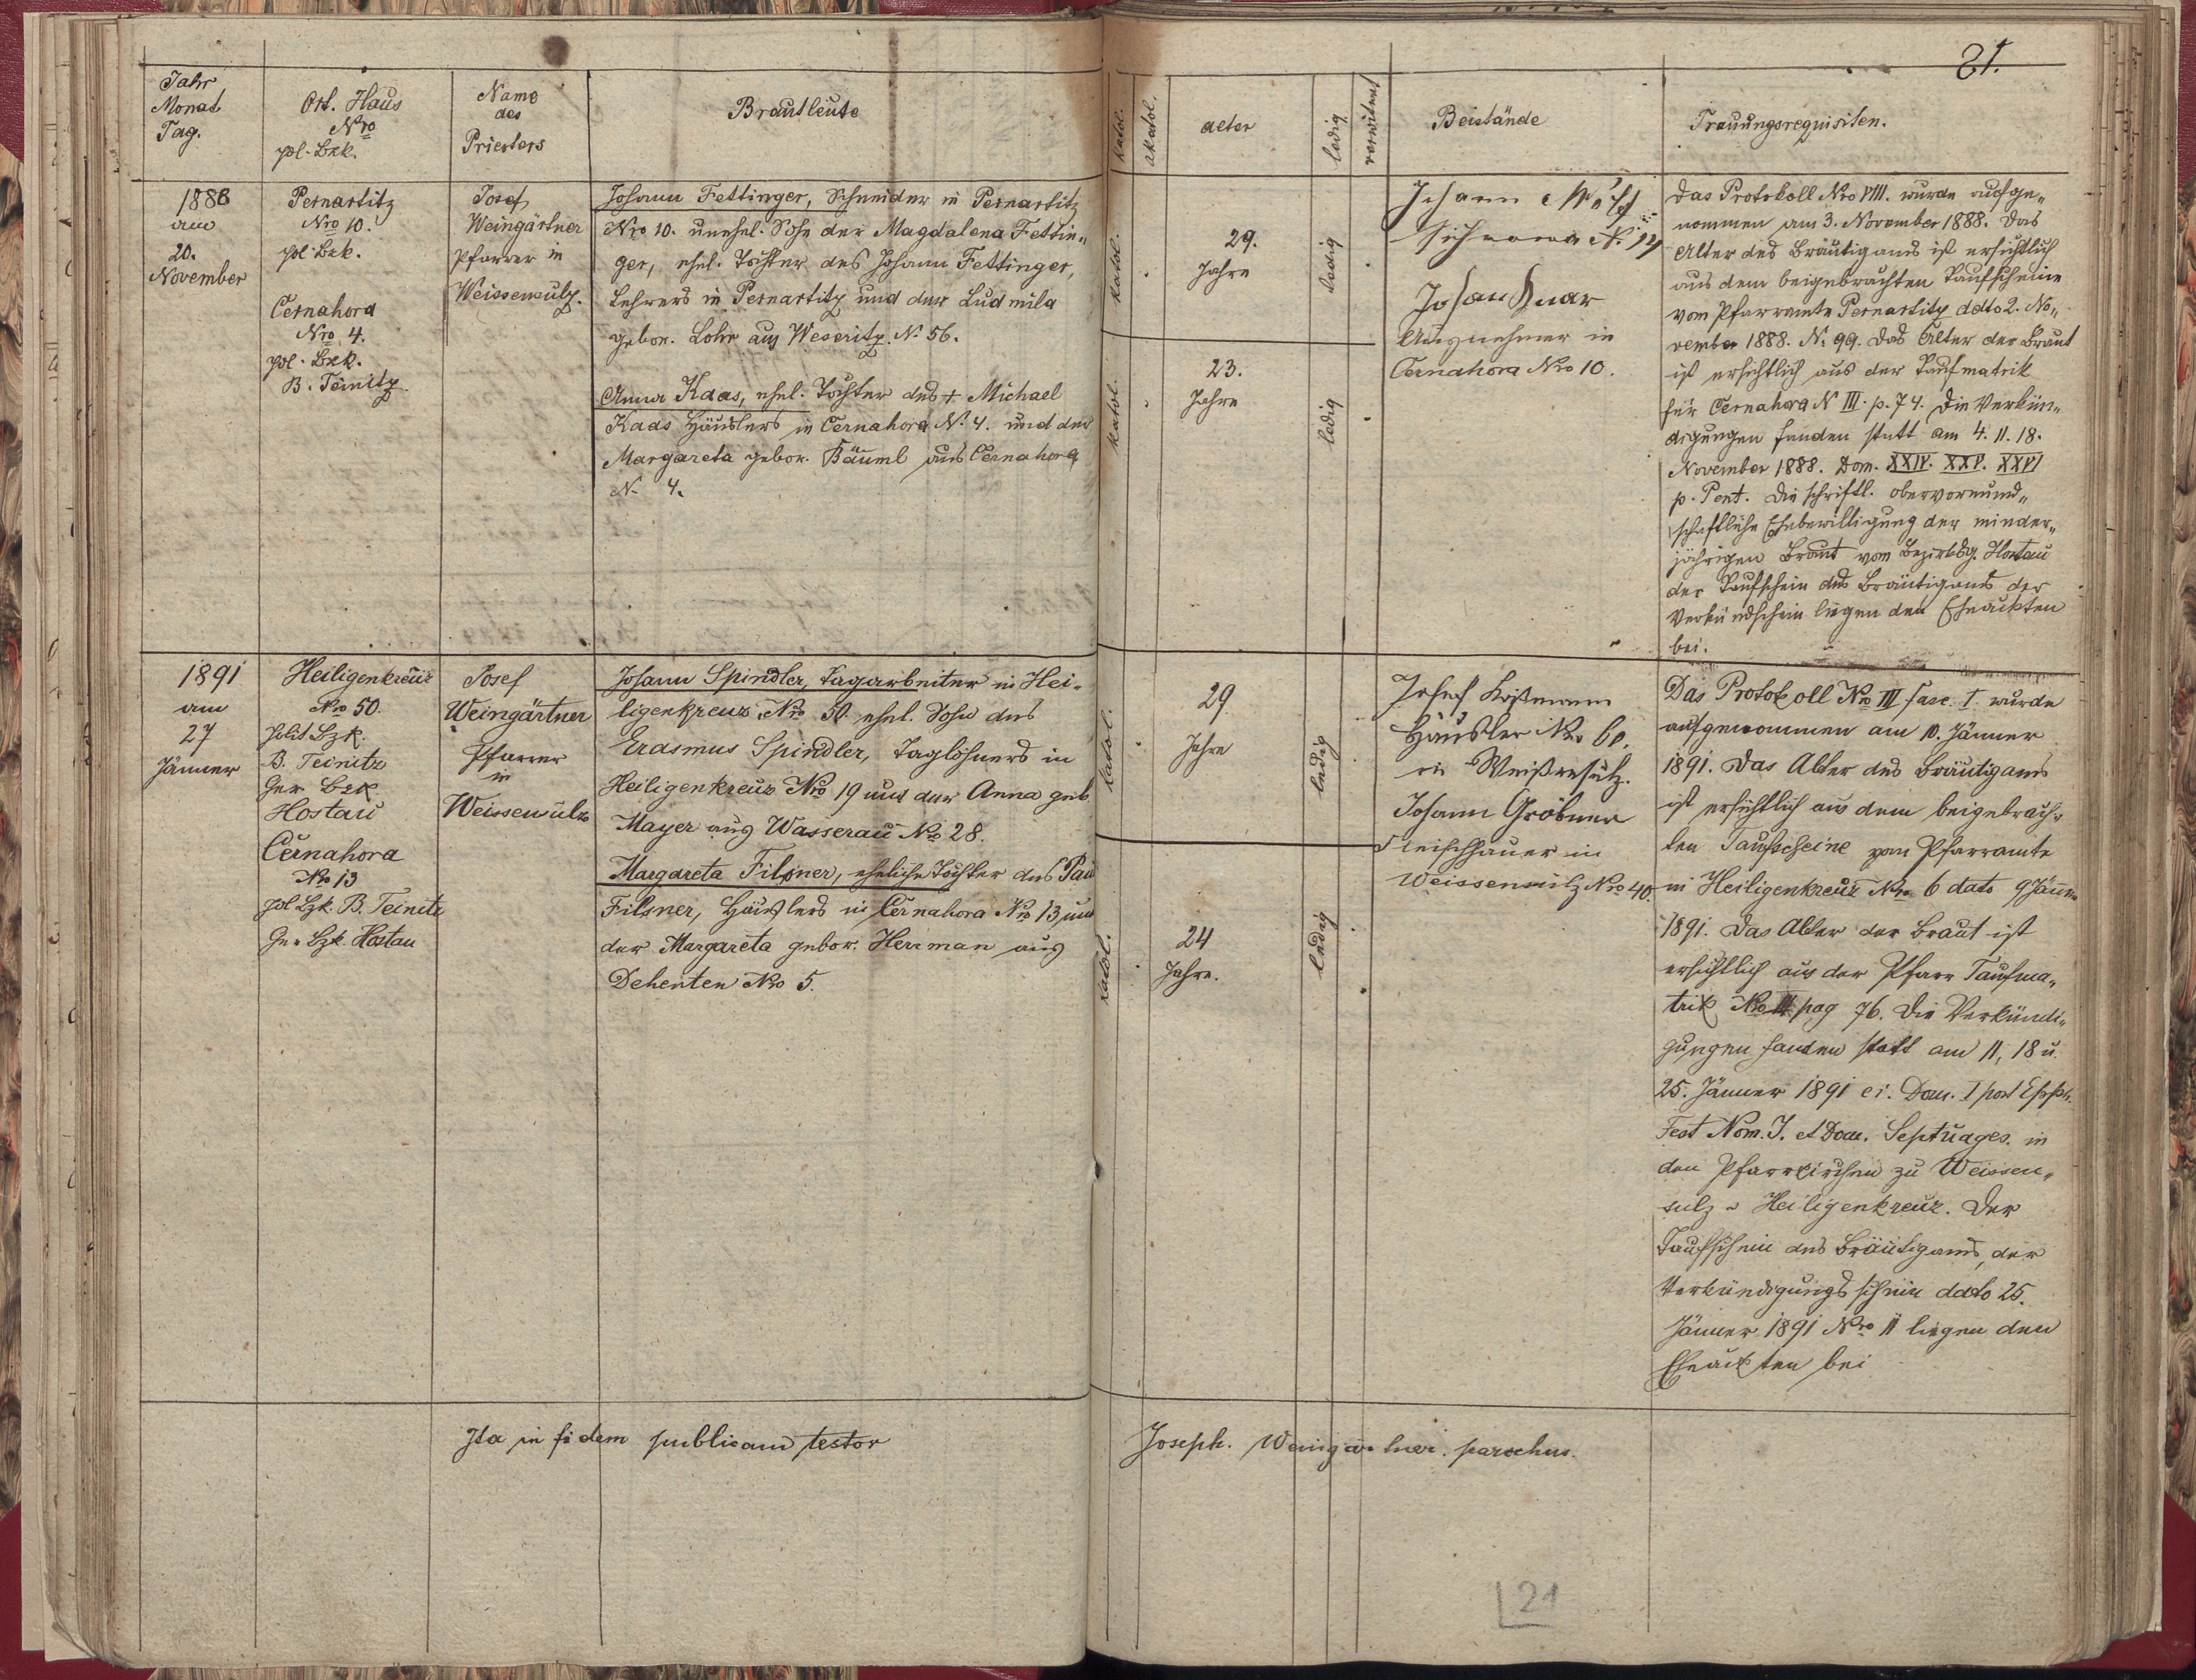 21.
Jahr
Monat
Tag.
Ort. Haus
Nro
pol. Bzk.
Name
des
Priesters
Brautleute
katol.
akatol.
alter
ledig
verwitwet
Beistände
Trauungsrequisiten.
1888
am
20.
November
Pernartitz
Nro 10.
pol. Bzk.
Černahora
Nro 4.
pol. Bzk.
B. Teinitz.
Josef
Weingärtner
Pfarrer in
Weissensulz.
Johann Fettinger, Schneider in Pernartitz
Nro 10. unehel. Sohn der Magdalena Fettin„
ger, ehel. Tochter des Johann Fettinger,
Lehrers in Pernartitz und der Ludmila
gebor. Lohr aus Weseritz. N. 56.
Anna Kaas, ehel. Tochter des + Michael
Kaas Häuslers in Černahora N. 4. und der
Margareta gebor. Bäuml aus Černahora
N. 4.
katol.
29.
Jahre
ledig
katol.
23.
Jahre
ledig
Johann
N. 14
Johann
Ausnehmer in
Černahora Nro 10.
Das Protokoll Nro VIII. wurde aufge„
nommen am 3. November 1888. Das
Alter des Bräutigams ist ersichtlich
aus dem beigebrachten Taufscheine
vom Pfarramte Pernartitz ddto 2. No„
vember 1888. N. 99. Das Alter der Braut
ist ersichtlich aus der Taufmatrik
für Černahora N III. p. 74. Die Verkün„
digungen fanden statt am 4. 11. 18.
November 1888. Dom. XXIV. XXV. XXVI
p. Pent. Die schriftl. obervormund„
schaftliche Ehebewilligung der minder„
jährigen Braut vom Bezirksg. Hostau
der Taufschein des Bräutigams der
Verkündschein liegen den Eheakten
bei.
1891
am
27
Jänner
Heiligenkreuz
Nro 50.
polit Bzk.
B. Teinitz
Ger Bzk
Hostau
Černahora
Nro 13
pol Bzk. B. Teinitz
Ger Bzk. Hostau
Josef
Weingärtner
Pfarrer
in
Weissensulz
Johann Spindler, Tagarbeiter in Hei-
ligenkreuz Nro 50. ehel. Sohn des
Erasmus Spindler, Taglöhners in
Heiligenkreuz Nro 19 und der Anna geb
Mayer aus Wasserau Nro 28.
Margareta Filsner, eheliche Tochter des Paul
Filsner, Häuslers in Černahora Nro 13 und
der Margareta gebor. Herrman aus
Dehenten Nro 5.
katol.
29
Jahre
ledig
katol.
24
Jahre.
ledig
Josef
Häusler Nro 60.
in Weißensulz.
Johann Gröbner
Fleischhauer in
Weissensulz Nro 40.
Das Protokoll Nro III fasc. I. wurde
aufgenommen am 10. Jänner
1891. Das Alter des Bräutigams
ist ersichtlich aus dem beigebrach„
ten Taufscheine vom Pfarramte
in Heiligenkreuz Nro 6 dato 9 Jänner
1891. Das Alter der Braut ist
ersichtlich aus der Pfarr Taufma„
trik Nro III pag 76. Die Verkündi„
gungen fanden statt am 11, 18 u.
25. Jänner 1891 ei. Dom. I post Epiph.
Fest Nom. J. et Dom. Septuages. in
den Pfarrkirchen zu Weissen„
sulz u Heiligenkreuz. Der
Taufschein des Bräutigams, der
Verkündigungsschein ddto 25.
Jänner 1891 Nro 11 liegen den
Eheakten bei
Ita in fidem publicam testor
Joseph. Weingärtner. parochus.
21